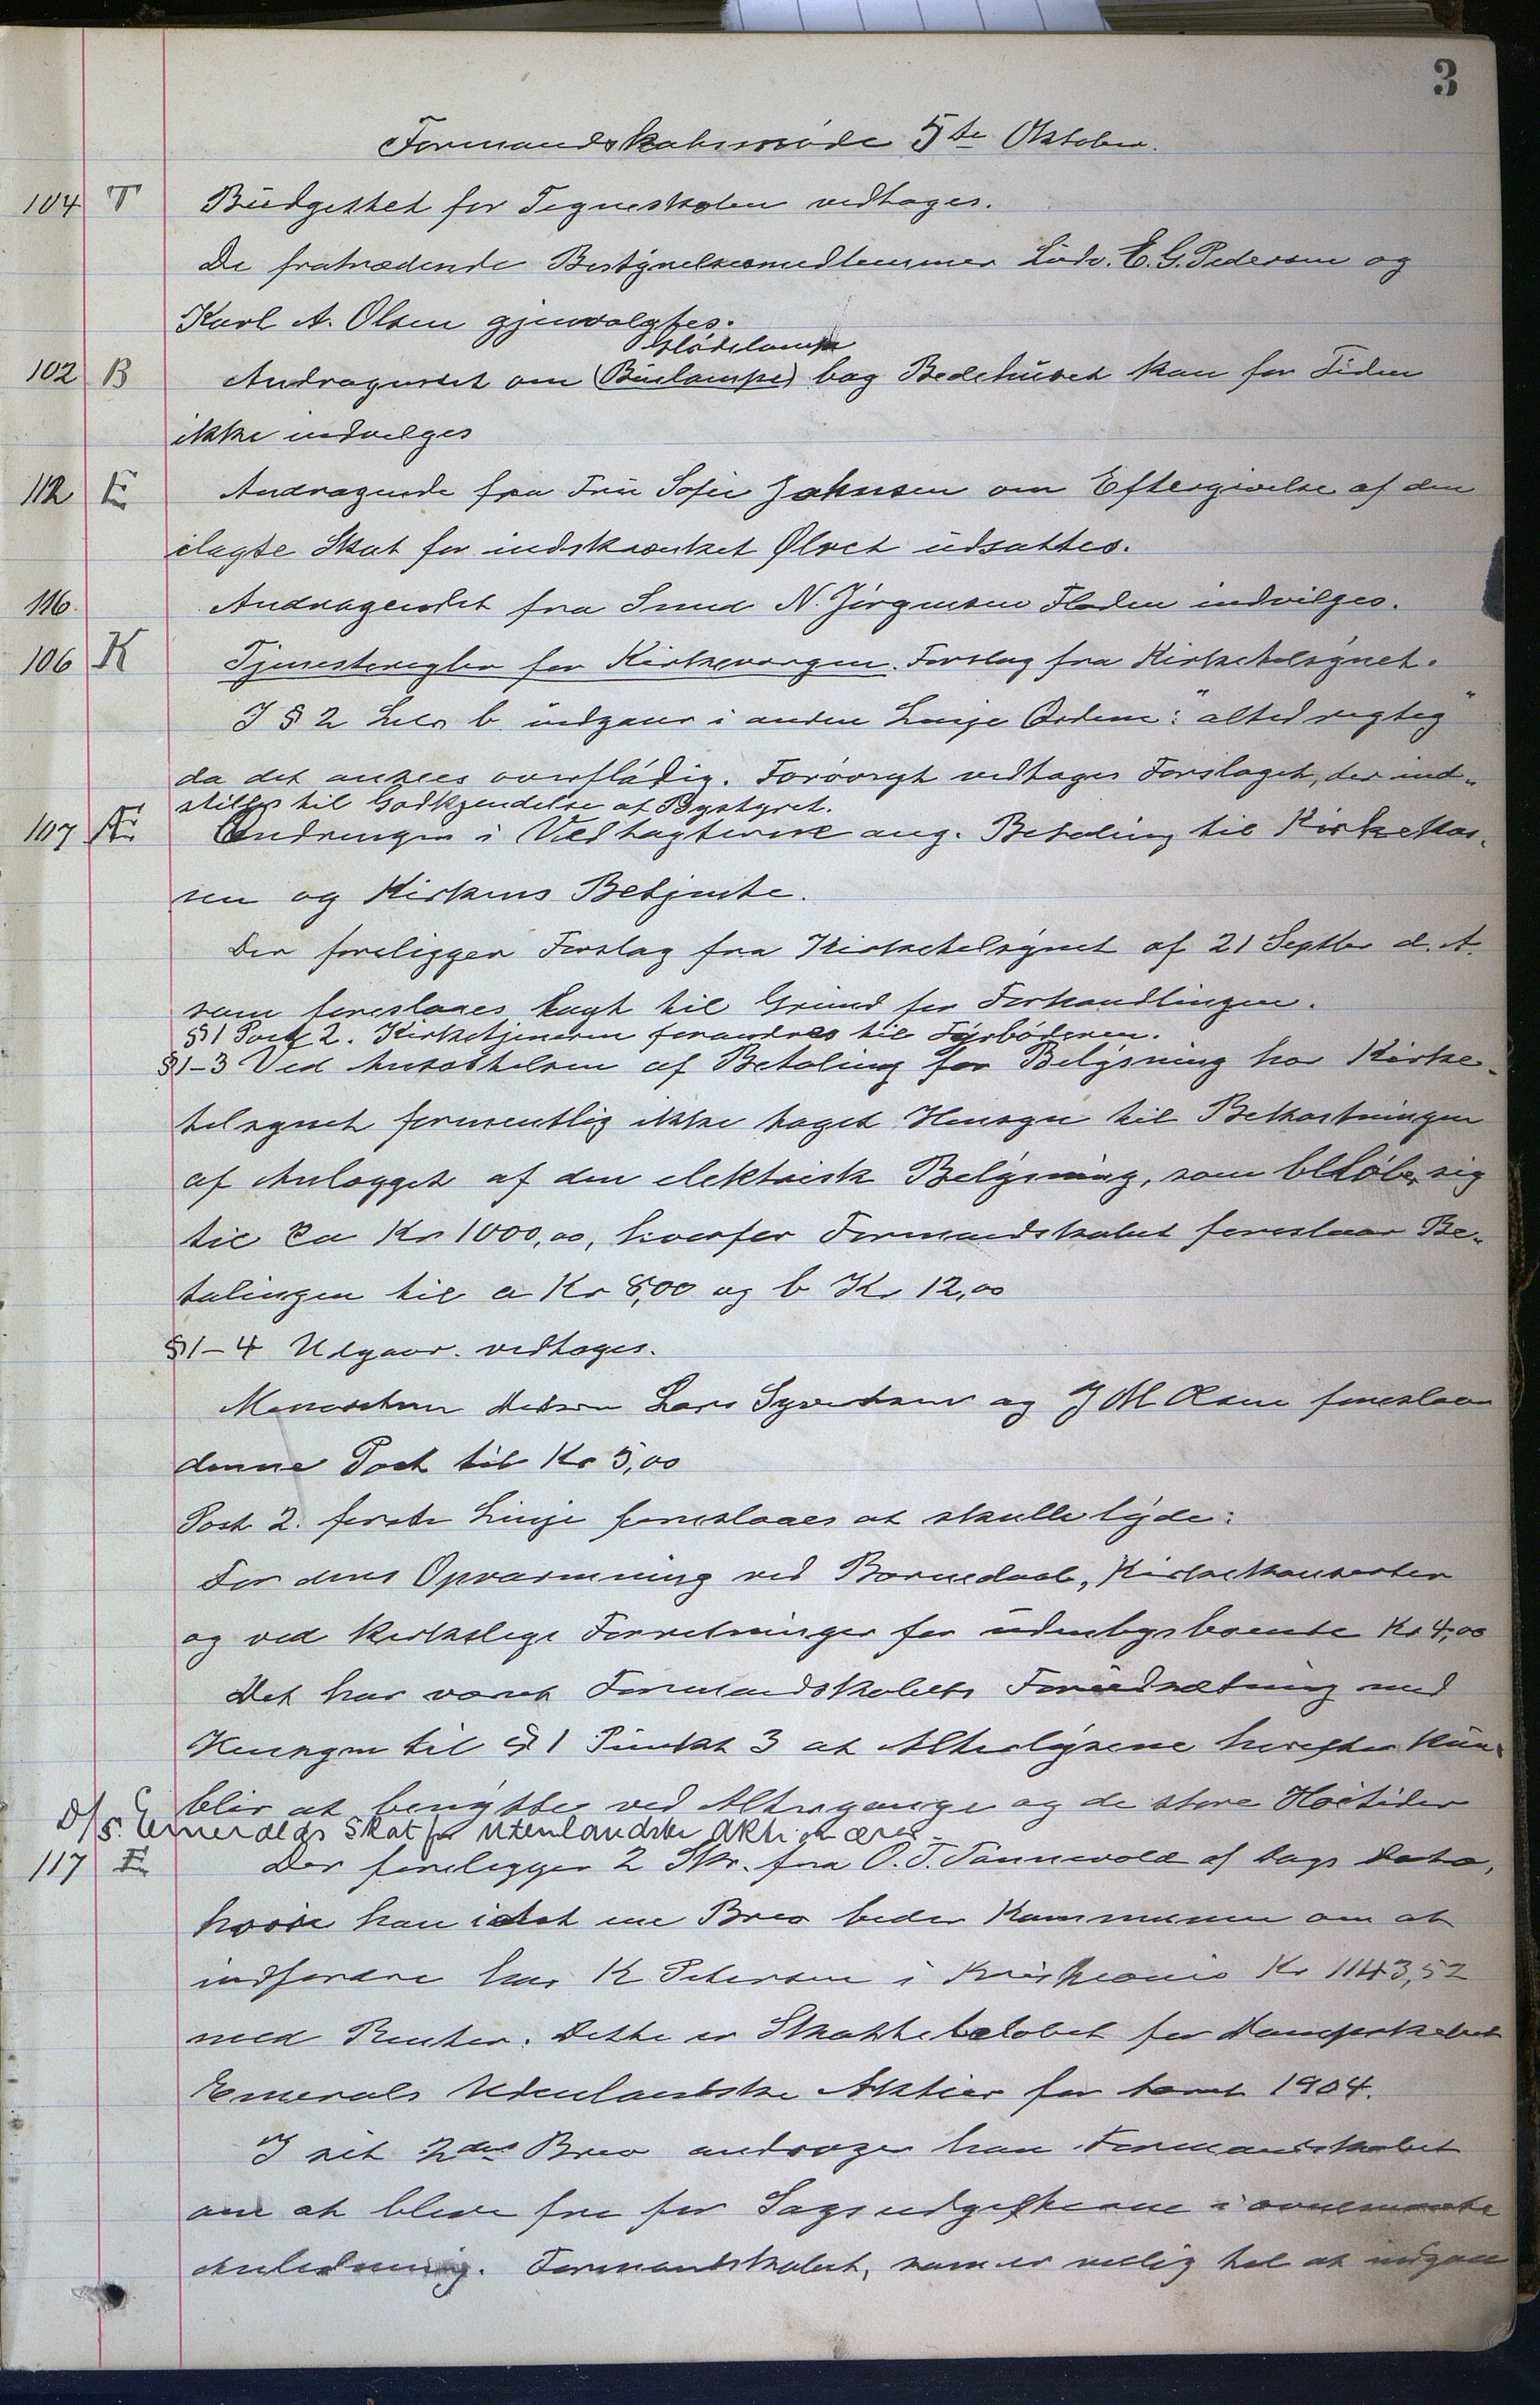 3
Formandskabsmøde 5te Oktober.
104 T Budgettet for Tegneskolen vedtages.
De fratrædende Bestyrelsesmedlemmer Ludv. E. G. Pedersen og
Karl A. Olsen gjenvalgtes.
Glødelampe
102 B Andragendet om (Buelampe) bag Bedehuset kan for Tiden
ikke indvilges
112 E Andragende fra Fru Sofie Jahnsen om Eftergivelse af den
ilagte Skat for indskrænket Ølret udsattes.
116. Andragendet fra Smed N. Jørgensen Floden indvilges.
106 K Tjenesteregler for Kirkevergen. Forslag fra Kirketilsynet.
I § 2 Litr b. udgaar i anden Linje Ordene: "altid rigtig"
da det ansees overflødig. Forøvrigt vedtages Forslaget, der ind-
stilles til Godkjendelse af Bystyret.
107 Æ Ændringer i Vedtægterne ang. Betaling til Kirkekas-
sen og Kirkens Betjente.
Der foreligger Forslag fra Kirketilsynet af 21 Septbr d. A.
som foreslaaes lagt til Grund for Forhandlingen.
§ 1 Post 2. Kirketjeneren forandres til Fyrbøderen.
§ 1-3 Ved Ansættelsen af Betaling for Belysning har Kirke-
tilsynet formentlig ikke taget Hensyn til Bekostningen
af Anlægget af den elektrisk Belysning, som beløber sig
til ca Kr 1000,00, hvorfor Formandskabet foreslaar Be-
talingen til a Kr 8,00 og b Kr 12,00
§ 1-4 Udgaar. vedtages.
Lars Syvertsen og J M Olsen foreslaar
denne Post til Kr 5,00
Post 2. første Linje foreslaaes at skulle lyde:
For dens Opvarmning ved Barnedaab, Kirkekonserter
og ved kirkelige Forretninger for udenbysboende Kr 4,00
Det har været Formandskabets Forudsætning med
Hensyn til § 1 Punkt 3 at Alterlysene herefter kun
blir at benytte ved Altergange og de store Høitider
D/S. Emeralds Skat for utenlandske Aktionærer
117 E Der foreligger 2 Skr. fra O. T. Tannevold af Dags Dato,
hvori han i det ene Brev beder Kommunen om at
indfordre hos K Petersen i Kristiania Kr 1143,52
med Renter. Dette er Skattebeløbet for Dampskibet
Emeralds Udenlandske Aktier for 1904.
I sit 2det Brev andrager han Formandskabet
om at blive fri for Sagsudgifterne i ovennævnte
Anledning. Formandskabet, som er villig til at indgaa